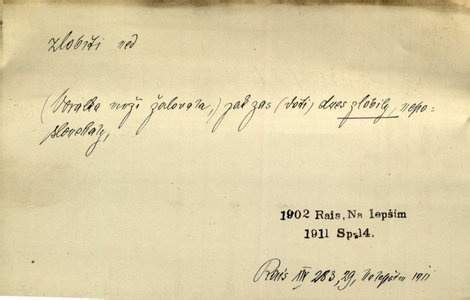 zlobiti ned
(Voralka muži žalovala,) jak zas (děti) dnes zlobily, nepo-
slouchaly,
1902 Rais, Na lepším
1911 Sp.14.
Rais XIV 283, 29, Na lepším 1911